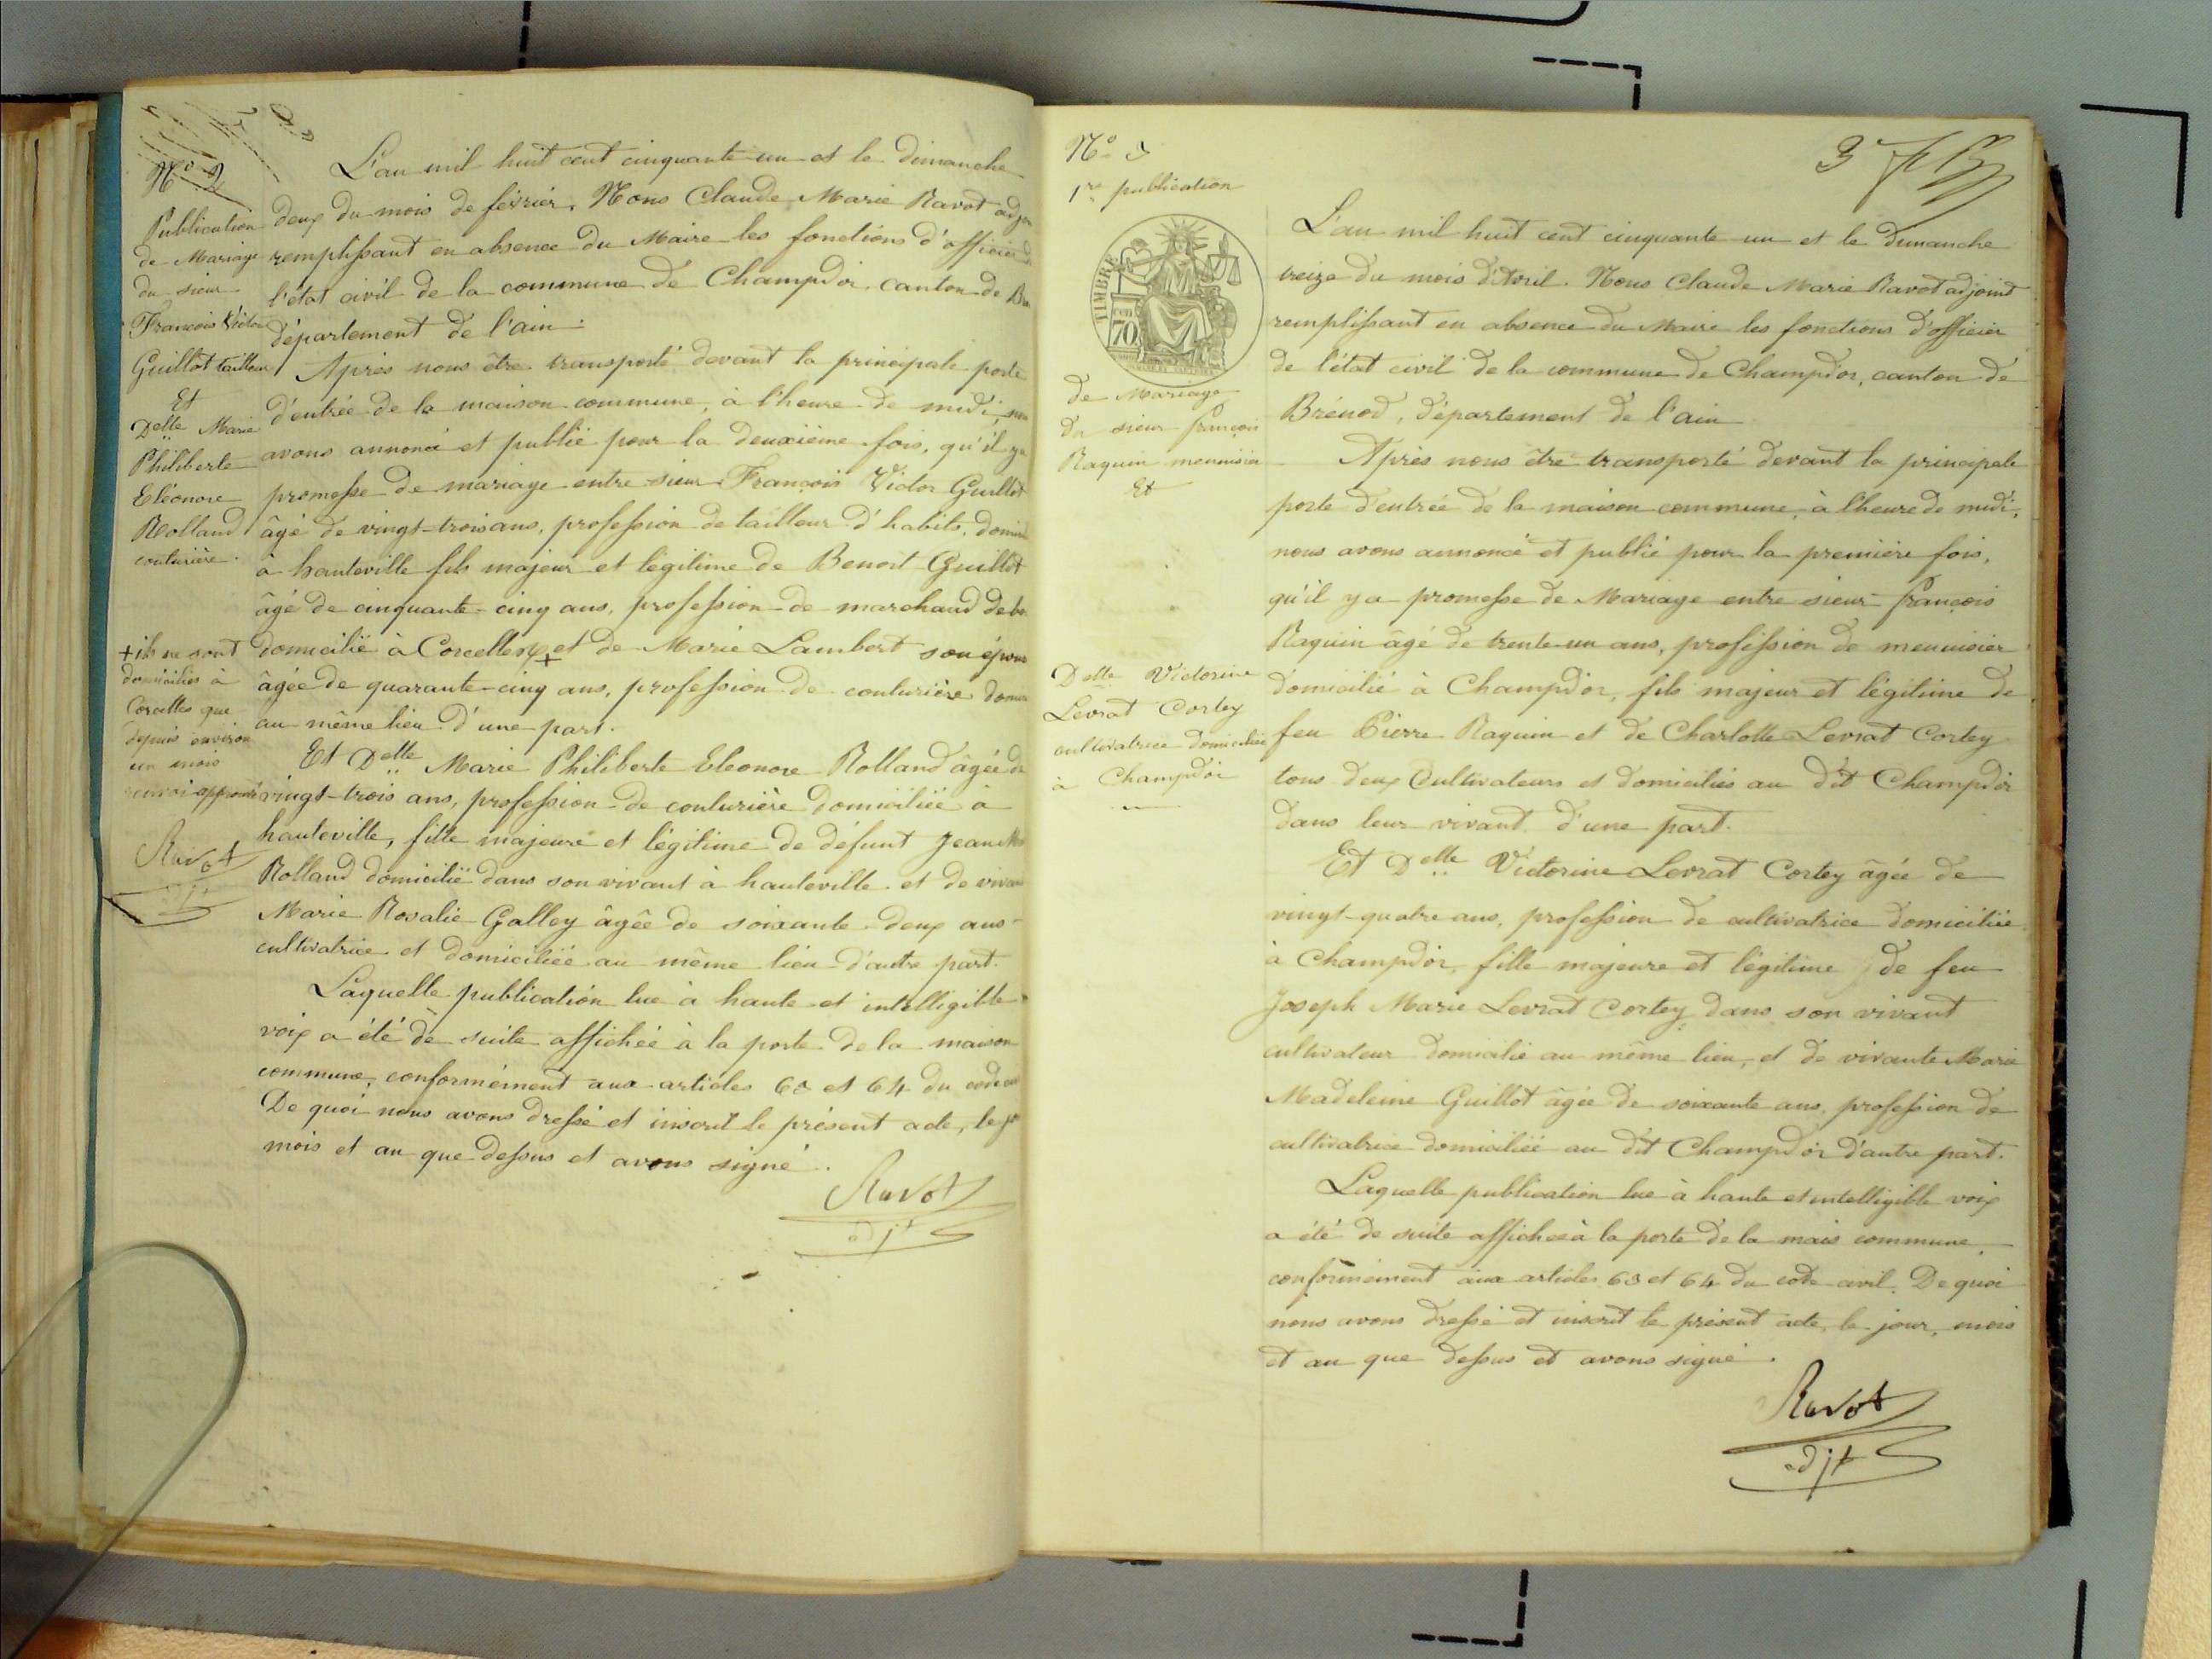 N.º 2
Publication
de Mariage
du sieur
François Victor
Guillot tailleur
Et
Delle Marie
Philiberte
Eléonore
Rolland
couturière.
+ ils ne sont
domiciliés à
Corcelles que
depuis environ
un mois
renvoi approuvé
Ravot
adjt
L'an mil huit cent cinquante-un et le dimanche
deux du mois de février. Nous Claude Marie Ravot
remplissant en absence du Maire les fonctions d'officier
l'état civil de la commune de Champdor, canton de
département de l'ain.
Après nous être transporté devant la principale porte
d'entrée de la maison commune, à l'heure de midi,
avons annoncé et publié pour la deuxième fois, qu'il y a
promesse de mariage entre sieur François Victor Guillot
âgé de vingt-trois ans, profession de tailleur d'habits,
à hauteville fils majeur et légitime de Benoit Guillot
âgé de cinquante-cinq ans, profession de marchand de
domicilié à Corcelles + et de Marie Lambert son
âgée de quarante-cinq ans, profession de couturière
au même lieu d'une part.
Et Delle Marie Philiberte Eleonore Rolland âgée de
vingt-trois ans, profession de couturière domiciliée à
hauteville, fille majeure et légitime de défunt Jean
Rolland domicilié dans son vivant à hauteville et de
Marie Rosalie Galley âgée de soixante-deux ans
cultivatrice et domiciliée au même lieu d'autre part.
Laquelle publication lue à haute et intelligible
voix a été de suite affichée à la porte de la maison
commune, conformément aux articles 63 et 64 du code
De quoi nous avons dressé et inscrit le présent acte, le
mois et an que dessus et avons signé.
Ravot
adjt
N.º 3
1re publication
TIMBRE
70
de Mariage
du sieur françois
Raquin menuisier
Et
Delle Victorine
Levrat Cortey
cultivatrice domiciliée
à Champdor
3
L'an mil huit cent cinquante-un et le dimanche
treize du mois d'Avril. Nous Claude Marie Ravot adjoint
remplissant en absence du Maire les fonctions d'officier
de l'état civil de la commune de Champdor, canton de
Brénod, département de l'ain
Après nous être transporté devant la principale
porte d'entrée de la maison commune, à l'heure de midi,
nous avons annoncé et publié pour la première fois,
qu'il y a promesse de Mariage entre sieur françois
Raquin âgé de trente-un ans, profession de menuisier
domicilié à Champdor, fils majeur et légitime de
feu Pierre Raquin et de Charlotte Levrat Cortey
tous deux Cultivateurs et domiciliés au dit Champdor
dans leur vivant d'une part.
Et Delle Victorine Levrat Cortey âgée de
vingt-quatre ans, profession de cultivatrice domiciliée
à Champdor, fille majeure et légitime de feu
Joseph Marie Levrat Cortey dans son vivant
cultivateur domicilié au même lieu, et de vivante Marie
Madeleine Guillot âgée de soixante ans, profession de
cultivatrice domiciliée au dit Champdor d'autre part.
Laquelle publication lue à haute et intelligible voix
a été de suite affichée à la porte de la mais commune,
conformément aux articles 63 et 64 du code civil. De quoi
nous avons dressé et inscrit le présent acte, le jour, mois
et an que dessus et avons signé.
Ravot
adjt